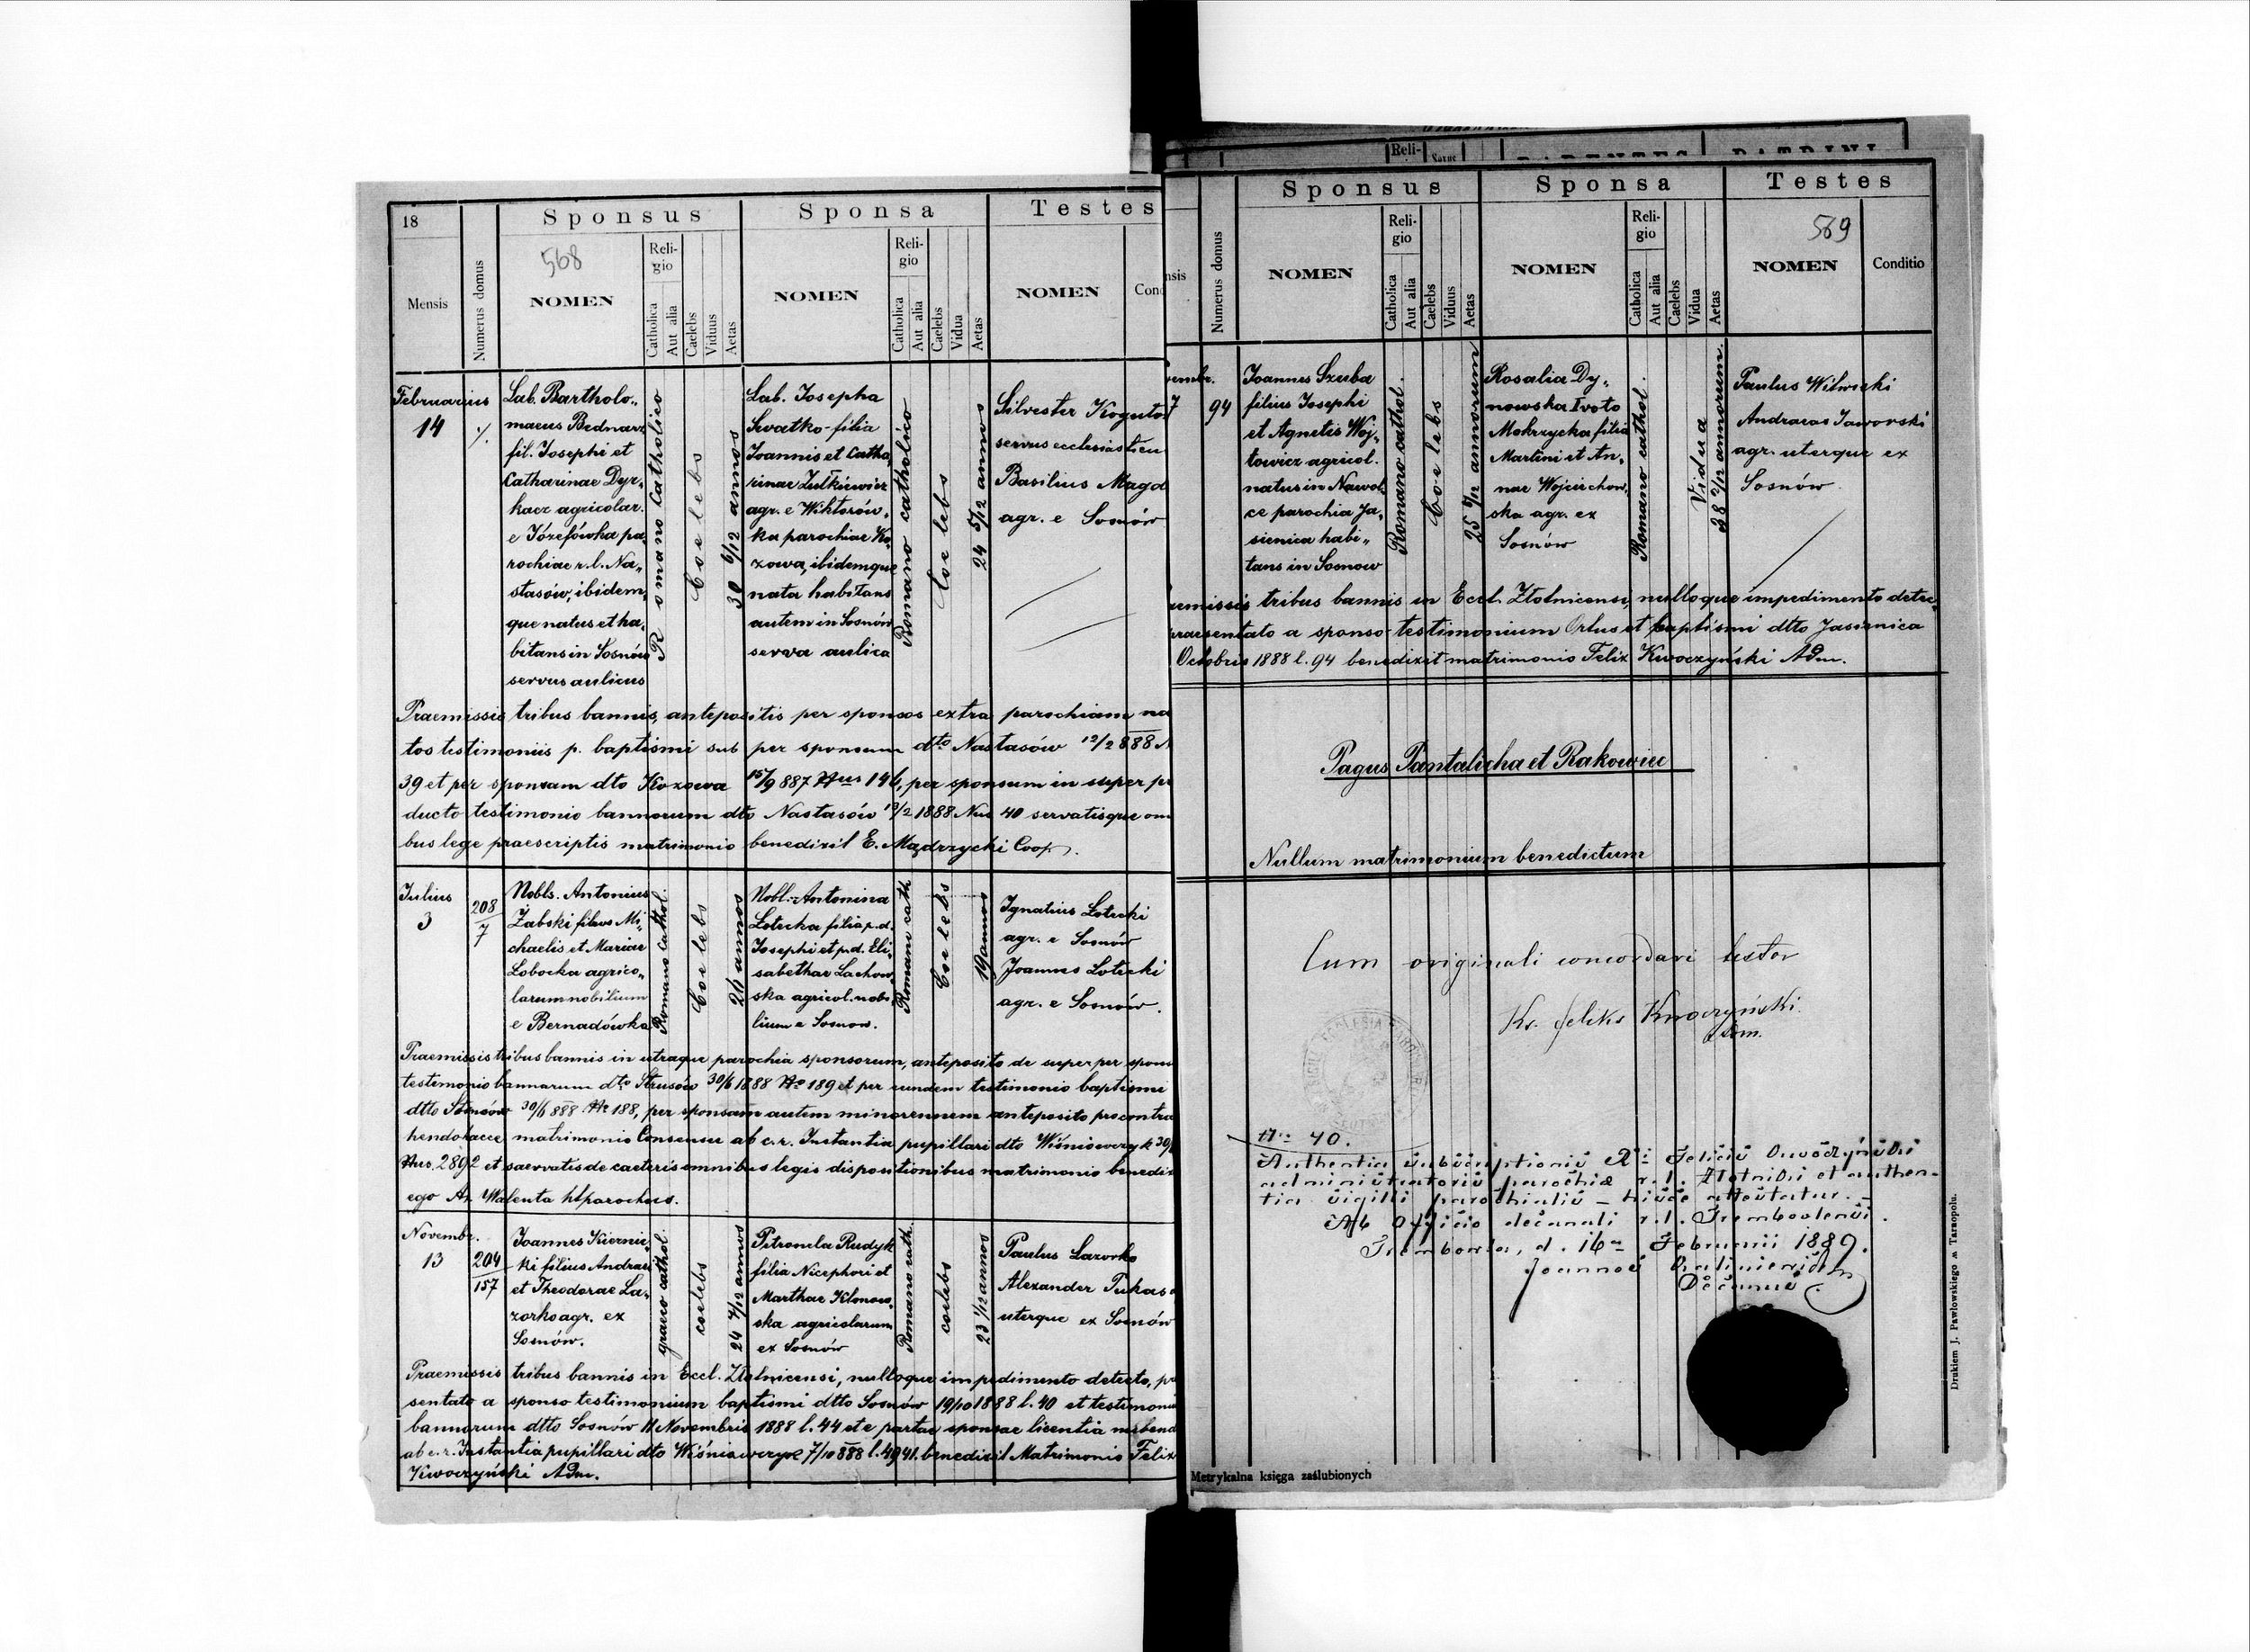 18
Sponsus
Sponsa
Testes
568
Mensis
Numerus domus
NOMEN
Reli-
gio
Catholica
Aut alia
Caelebs
Viduus
Aetas
NOMEN
Reli-
gio
Catholica
Aut alia
Caelebs
Vidua
Aetas
NOMEN
Cond
Februarius
14
Lab. Bartholo„
maeus Bednarz
fil. Josephi et
Catharinae Dyr„
kacz agricolar.
e Józefówka pa„
rochiae r. l. Na„
stasów, ibidem„
que natus et ha„
bitans in Sosnów
servus aulicus
Romano Catholico
Coelebs
30 6/12 annos
Lab. Josepha
Swatko filia
Joannis et Catha„
rinae Zulkiewicz
agr. e Wiktorów„
ka parochiae Ko„
zowa, ibidemque
nata habitans
autem in Sosnów
serva aulica
Romano catholico
Coelebs
24 5/12 annos
Silvester Koguto
servus ecclesiasticu
Basilius Magd
agr. e Sosnów
Praemissis tribus bannis, antepositis per sponsos extra parochiam na
tos testimoniis p. baptismi sub per sponsum dto Nastasów 12/2 888 N
39 et per sponsam dto Kozowa 15/9 887 Nus 146, per sponsum in super pr
ducto testimonio bannorum dto Nastasów /2 1888 Nus 40 servatisque om
bus lege praescriptis matrimonio benedixit E. Mądrzycki Coop.
Julius
3
208
7
Nobls. Antonius
Żabski filius Mi„
chaelis et Mariae
Lobocka agrico„
larum nobilium
e Bernadówka
Romano cathol.
Coelebs
26 annos
Nobl. Antonina
Lotecka filia p. d.
Josephi et p. d. Eli„
sabethae Lachow„
ska agricol. nobi
lium e Sosnow.
Romano cath
Coelebs
19 annos
Ignatius Lotecki
agr. e Sosnów
Joannes Lotecki
agr. e Sosnów.
Praemissis tribus bannis in utraque parochia sponsorum, anteposito de super per spons
testemonio bannarum dto Strusów 30/6 1888 No 189 et per eundem testimonio baptismi
dtto 30/6 888 No 188, per sponsam autem minorennem anteposito pro contra
hendo hacce matrimonio Consensu ab c. r. Instantia pupillari dto Wiśniowczyk 30/
Nus. 2892 et saervatis de caeteris omnibus legis dispositionibus matrimonio benedix
ego An. Walenta parochus.
Novembr.
13
204
157
Joannes Kiernic„
ki filius Andreae
et Theodorae La„
zorko agr. ex
Sosnów.
graeco cathol.
coelebs
24 /12 annos
Petronela Rudyk
filia Nicephori et
Marthae Klonow„
ska agricolarum
ex Sosnów
Romano cath.
coelebs
23 1/12 annos
Paulus Lazorko
Alexander Tukas
uterque ex Sosnów
Praemissis tribus bannis in Eccl. Złotnicensi, nulloque impedimento detecto, pr
sentato a sponso testimonium baptismi dtto Sosnów 19/10 1888 l. 40 et testimoniu
bannorum dtto Sosnów 11 Novembris 1888 l. 44 et e partae sponsae licentia nubend
ab c. r. Instantia pupillari dto Wiśniowczyk 7/10 888 l. 4941. benedixit Matrimonio Felix
Kwoczyński Adm.
Reli-
Sponsus
Sponsa
Testes
nsis
Numerus domus
NOMEN
Reli-
gio
Catholica
Aut alia
Caelebs
Viduus
Aetas
NOMEN
Reli-
gio
Catholica
Aut alia
Caelebs
Vidua
Aetas
569
NOMEN
Conditio
vembr.
7
94
Joannes Szuba
filius Josephi
et Agnetis Woj„
towicz agricol.
natus in Nawol„
ce parochia Ja„
sienica habi„
tans in Sosnow
Romano cathol.
Coelebs
25 /12 annorum
Rosalia Dy„
nowska Ivoto
Mokrzycka filia
Martini et An„
nae Wojciechow„
ska agr. ex
Sosnów
Romano cathol.
Vidua
38 /12 annorum.
Paulus Wilwicki
Andraeas Jaworski
agr. uterque ex
Sosnów
aemissis tribus bannis in Eccl. Złotnicensi, nulloque impedimento detec„
praesentato a sponso testimonium Ortus et baptismi dtto Jasienica
Octobris 1888 l. 94 benedixit matrimonio Felix Kwoczyński Adm.
Pagus Pantalicha et Rakowiec
Nullum matrimonium benedictum
Cum originali concordari testor
Ks. Feliks Kwoczyński
Adm.
No 40.
Authentia subscriptionis Ri Felicis Kwoczyński
administratoris parochiæ r. l. Złotniki et authen-
tia sigilli parochialis – hisce attestatur. –
Ab Officio decanali r. l. Trembovlensi.
Trembowla, d. 16a Februarii 1889.
Joannes
Decanus.
Metrykalna księga zaślubionych
Drukiem J. Pawłowskiego w Tarnopolu.